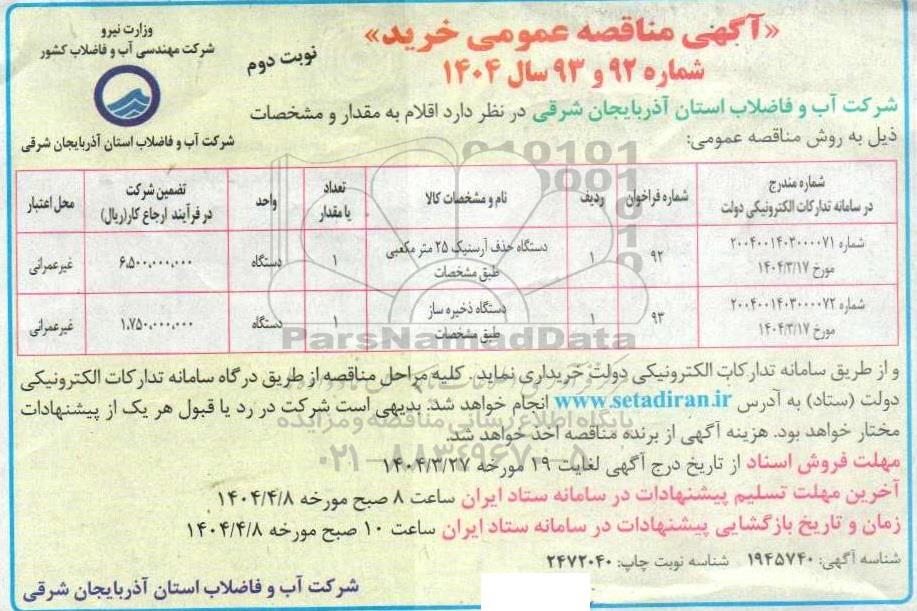 «آگهی مناقصه عمومی خرید»
شماره ۹۲ و ۹۳ سال ۱۴۰۴
نوبت دوم
وزارت نیرو
شرکت مهندسی آب و فاضلاب کشور
شرکت آب و فاضلاب استان آذربایجان شرقی
شرکت آب و فاضلاب استان آذربایجان شرقی در نظر دارد اقلام به مقدار و مشخصات
ذیل به روش مناقصه عمومی:
شماره مندرج در سامانه تدارکات الکترونیکی دولت	شماره فراخوان	ردیف	نام و مشخصات کالا	تعداد یا مقدار	واحد	تضمین شرکت در فرآیند ارجاع کار(ریال)	محل اعتبار
شماره ۲۰۰۴۰۰۱۴۰۳۰۰۰۰۷۱ مورخ ۱۴۰۴/۳/۱۷	۹۲	۱	دستگاه حذف آرسنیک ۲۵ متر مکعبی طبق مشخصات	۱	دستگاه	۶،۵۰۰،۰۰۰،۰۰۰	غیرعمرانی
شماره ۲۰۰۴۰۰۱۴۰۳۰۰۰۰۷۲ مورخ ۱۴۰۴/۳/۱۷	۹۳	۱	دستگاه ذخیره ساز طبق مشخصات	۱	دستگاه	۱،۷۵۰،۰۰۰،۰۰۰	غیرعمرانی
ParsNamadData
و از طریق سامانه تدارکات الکترونیکی دولت خریداری نماید. کلیه مراحل مناقصه از طریق درگاه سامانه تدارکات الکترونیکی
دولت (ستاد) به آدرس www.setadiran.ir انجام خواهد شد. بدیهی است شرکت در رد یا قبول هر یک از پیشنهادات
مختار خواهد بود. هزینه آگهی از برنده مناقصه اخذ خواهد شد.
پایگاه اطلاع رسانی مناقصه و مزایده
۰۲۱-۸۸۳۴۹۶۷۰-۵
مهلت فروش اسناد از تاریخ درج آگهی لغایت ۱۹ مورخه ۱۴۰۴/۳/۲۷
آخرین مهلت تسلیم پیشنهادات در سامانه ستاد ایران ساعت ۸ صبح مورخه ۱۴۰۴/۴/۸
زمان و تاریخ بازگشایی پیشنهادات در سامانه ستاد ایران ساعت ۱۰ صبح مورخه ۱۴۰۴/۴/۸
شناسه آگهی: ۱۹۴۵۷۴۰ شناسه نوبت چاپ: ۲۴۷۲۰۴۰
شرکت آب و فاضلاب استان آذربایجان شرقی